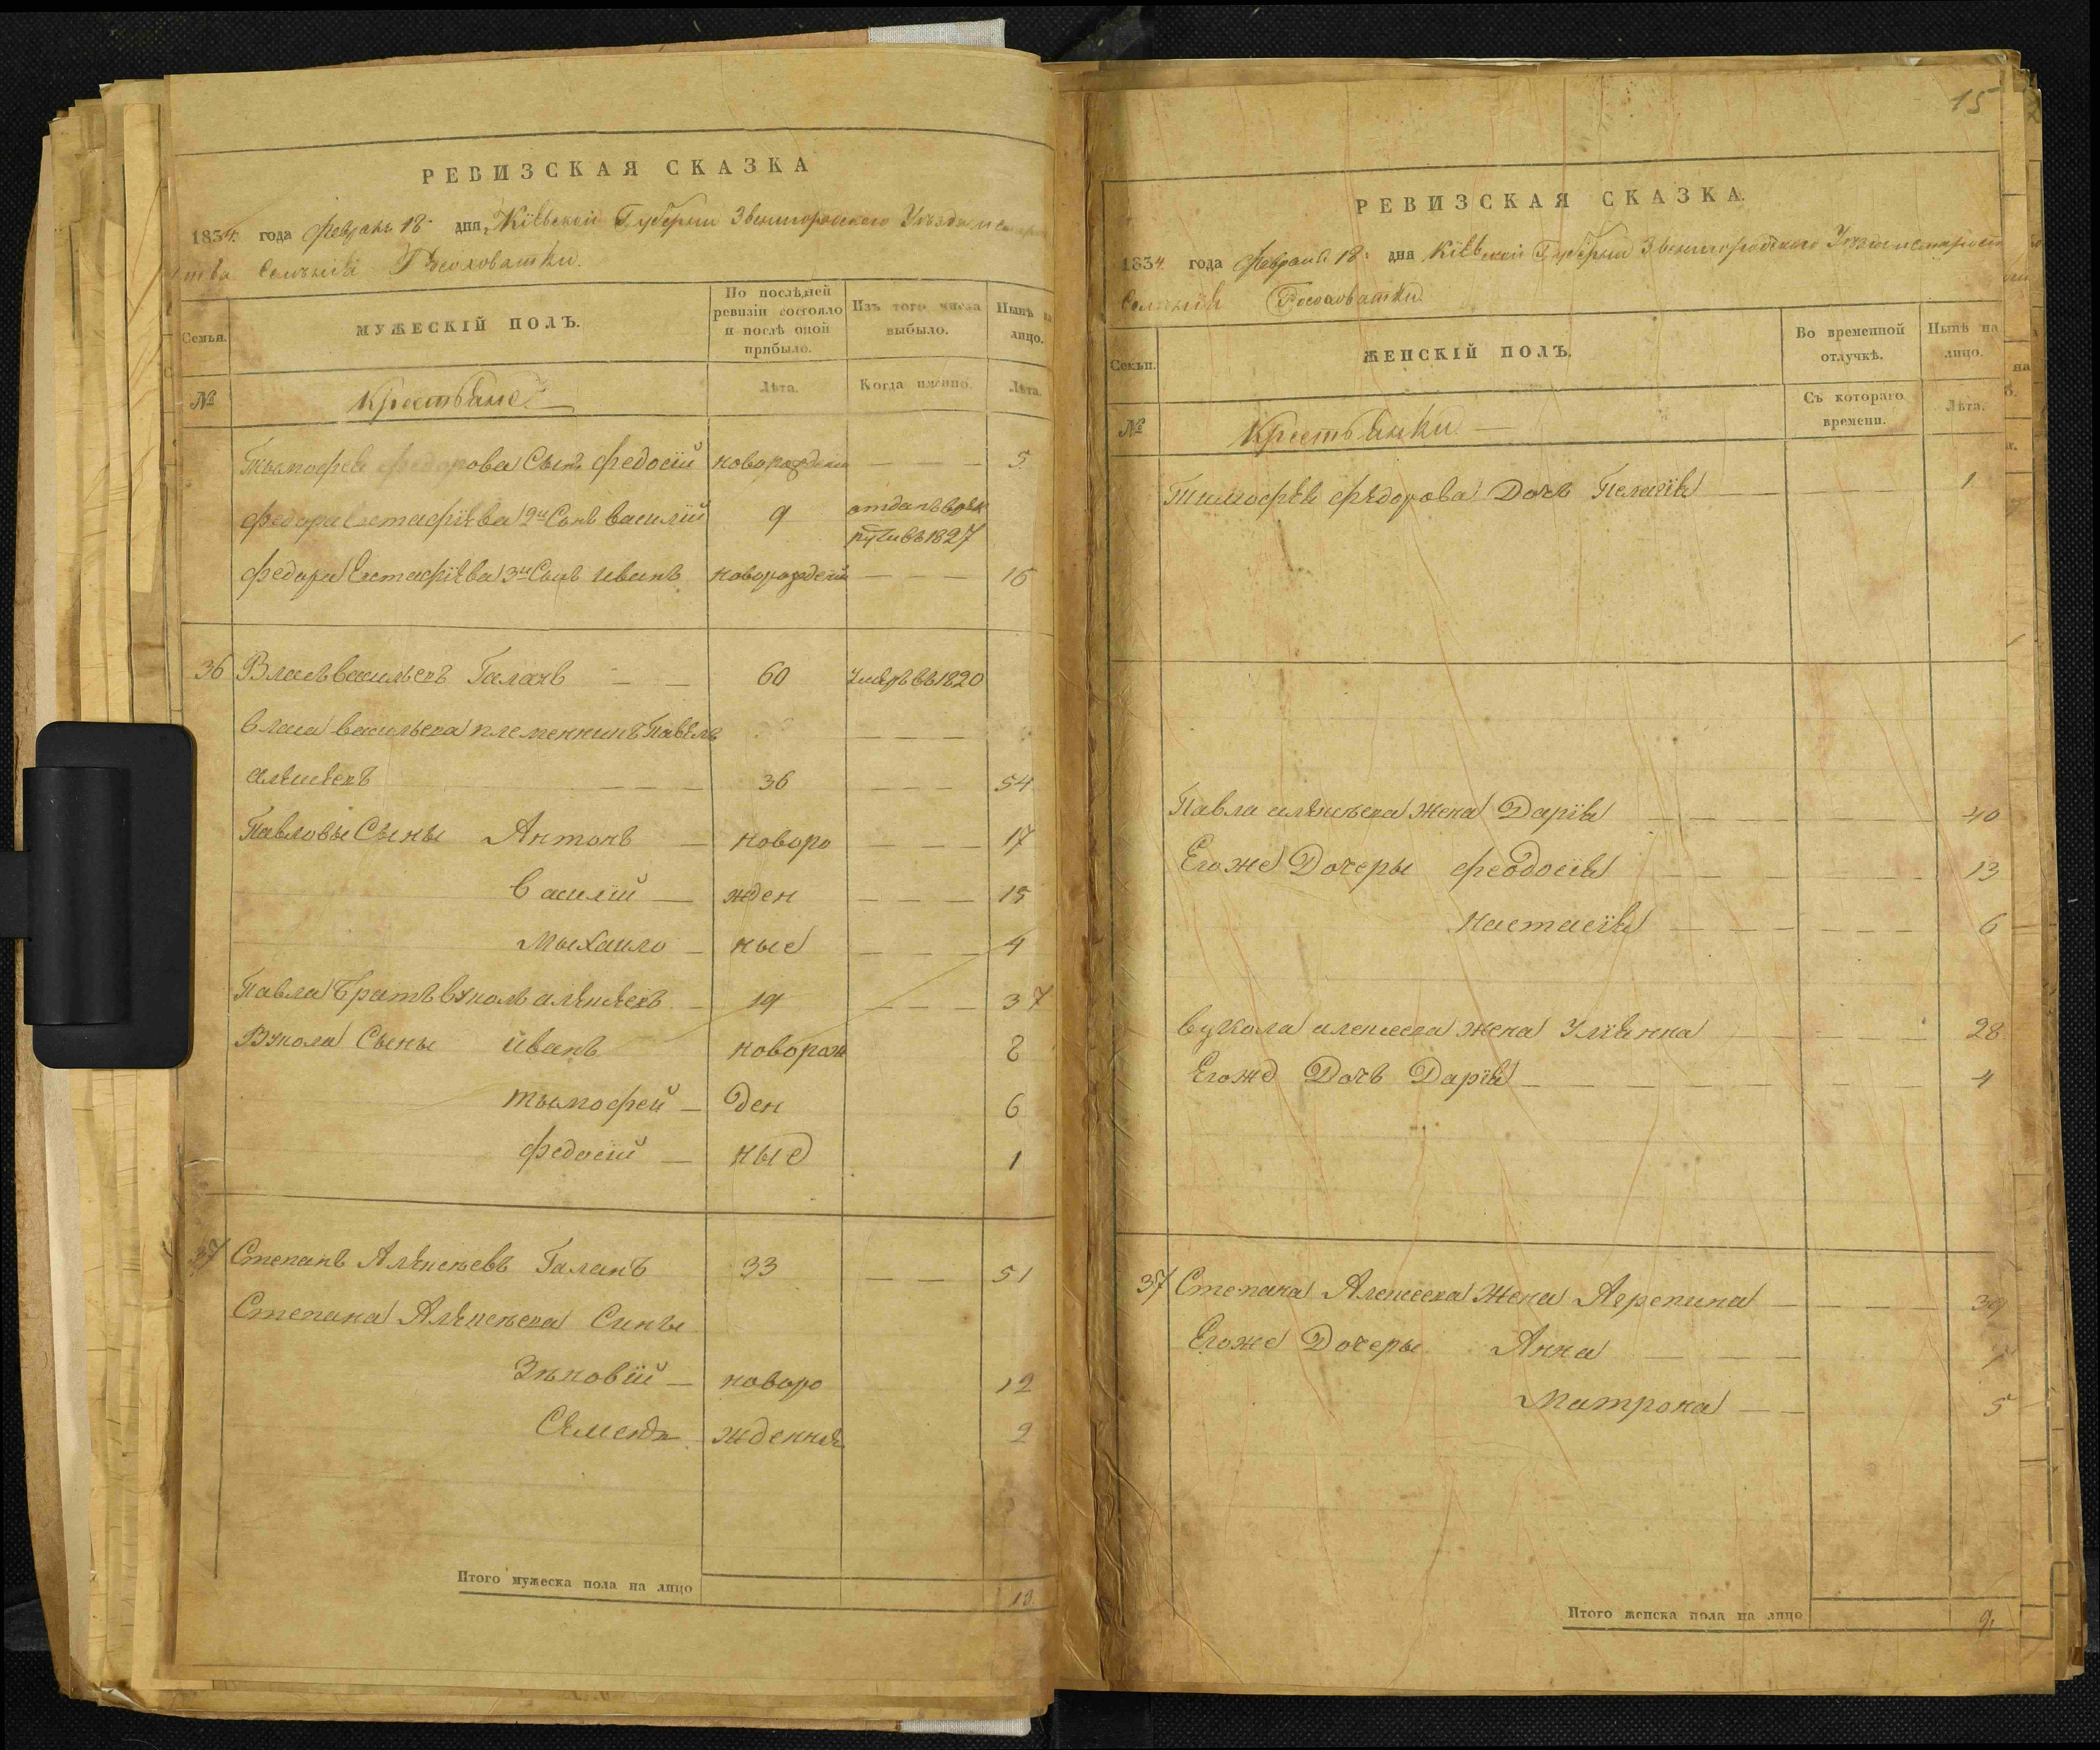 РЕВИЗСКАЯ СКАЗКА
1834 года февраля 18 дня, Кіевской Губерніи Звенигородского Уезда и старо
ства Селенія Росоховатки.
Семьи. МУЖЕСКІЙ ПОЛЪ. По послѣдней ревизіи состояло и послѣ оной прибыло. Изъ того числа выбыло. Нынѣ на лицо.
№ Крестьяне Лѣта. Когда именно. Лѣта.
Тымофея федорова Сынъ федосій новорожденн 5
федора Евстафіева 2й Сынъ василій 9 отданъ врек
руты въ 1827
федора Евстафіева 3й Сынъ иванъ новорожденй 16
36 Власъ васильевъ Галачъ 60 умеръ въ 1820
власа васильева племенникъ Павелъ
алексеевъ 36 54
Павловы Сыны Антонъ новоро 17
василій жден 15
Мыхаило ные 4
Павла братъ вукол алексеевъ 19 37
Вукола Сыны иванъ новорож 8
тымофей ден 6
федосій ные 1
37 Степанъ Алексеевъ Галачъ 33 51
Степана Алексеева Сины
Зиновій новоро 12
Семенъ жденные 2
Итого мужеска пола на лицо 12
15
РЕВИЗСКАЯ СКАЗКА.
1834 года февраля 18: дня Кіевской Губерніи Звенигородского Уезда и старост
Селенія Росоховатки
Семьи. ЖЕНСКІЙ ПОЛЪ. Во временной отлучкѣ. Нынѣ на лицо.
№ Крестьянки Съ котораго времени. Лѣта.
Тимофея федорова Дочь Пелагія 1
Павла алексеева жена Дарія 40
Егоже Дочеры феодосія 13
настасія 6
вукола алексеева жена Улянна 28
Егоже Дочь Дарія 4
37 Степана Алексеева Жена Агрепина 39
Егоже Дочеры Анна
Матрона 5
Итого женска пола на лицо 9